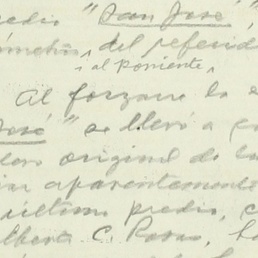 predio "San José",
del referid
al Poniente,
Al forzarse la e
José" se llevó a c
original de la
aparentemente
último predio, c
lberto C. Rosas, ha